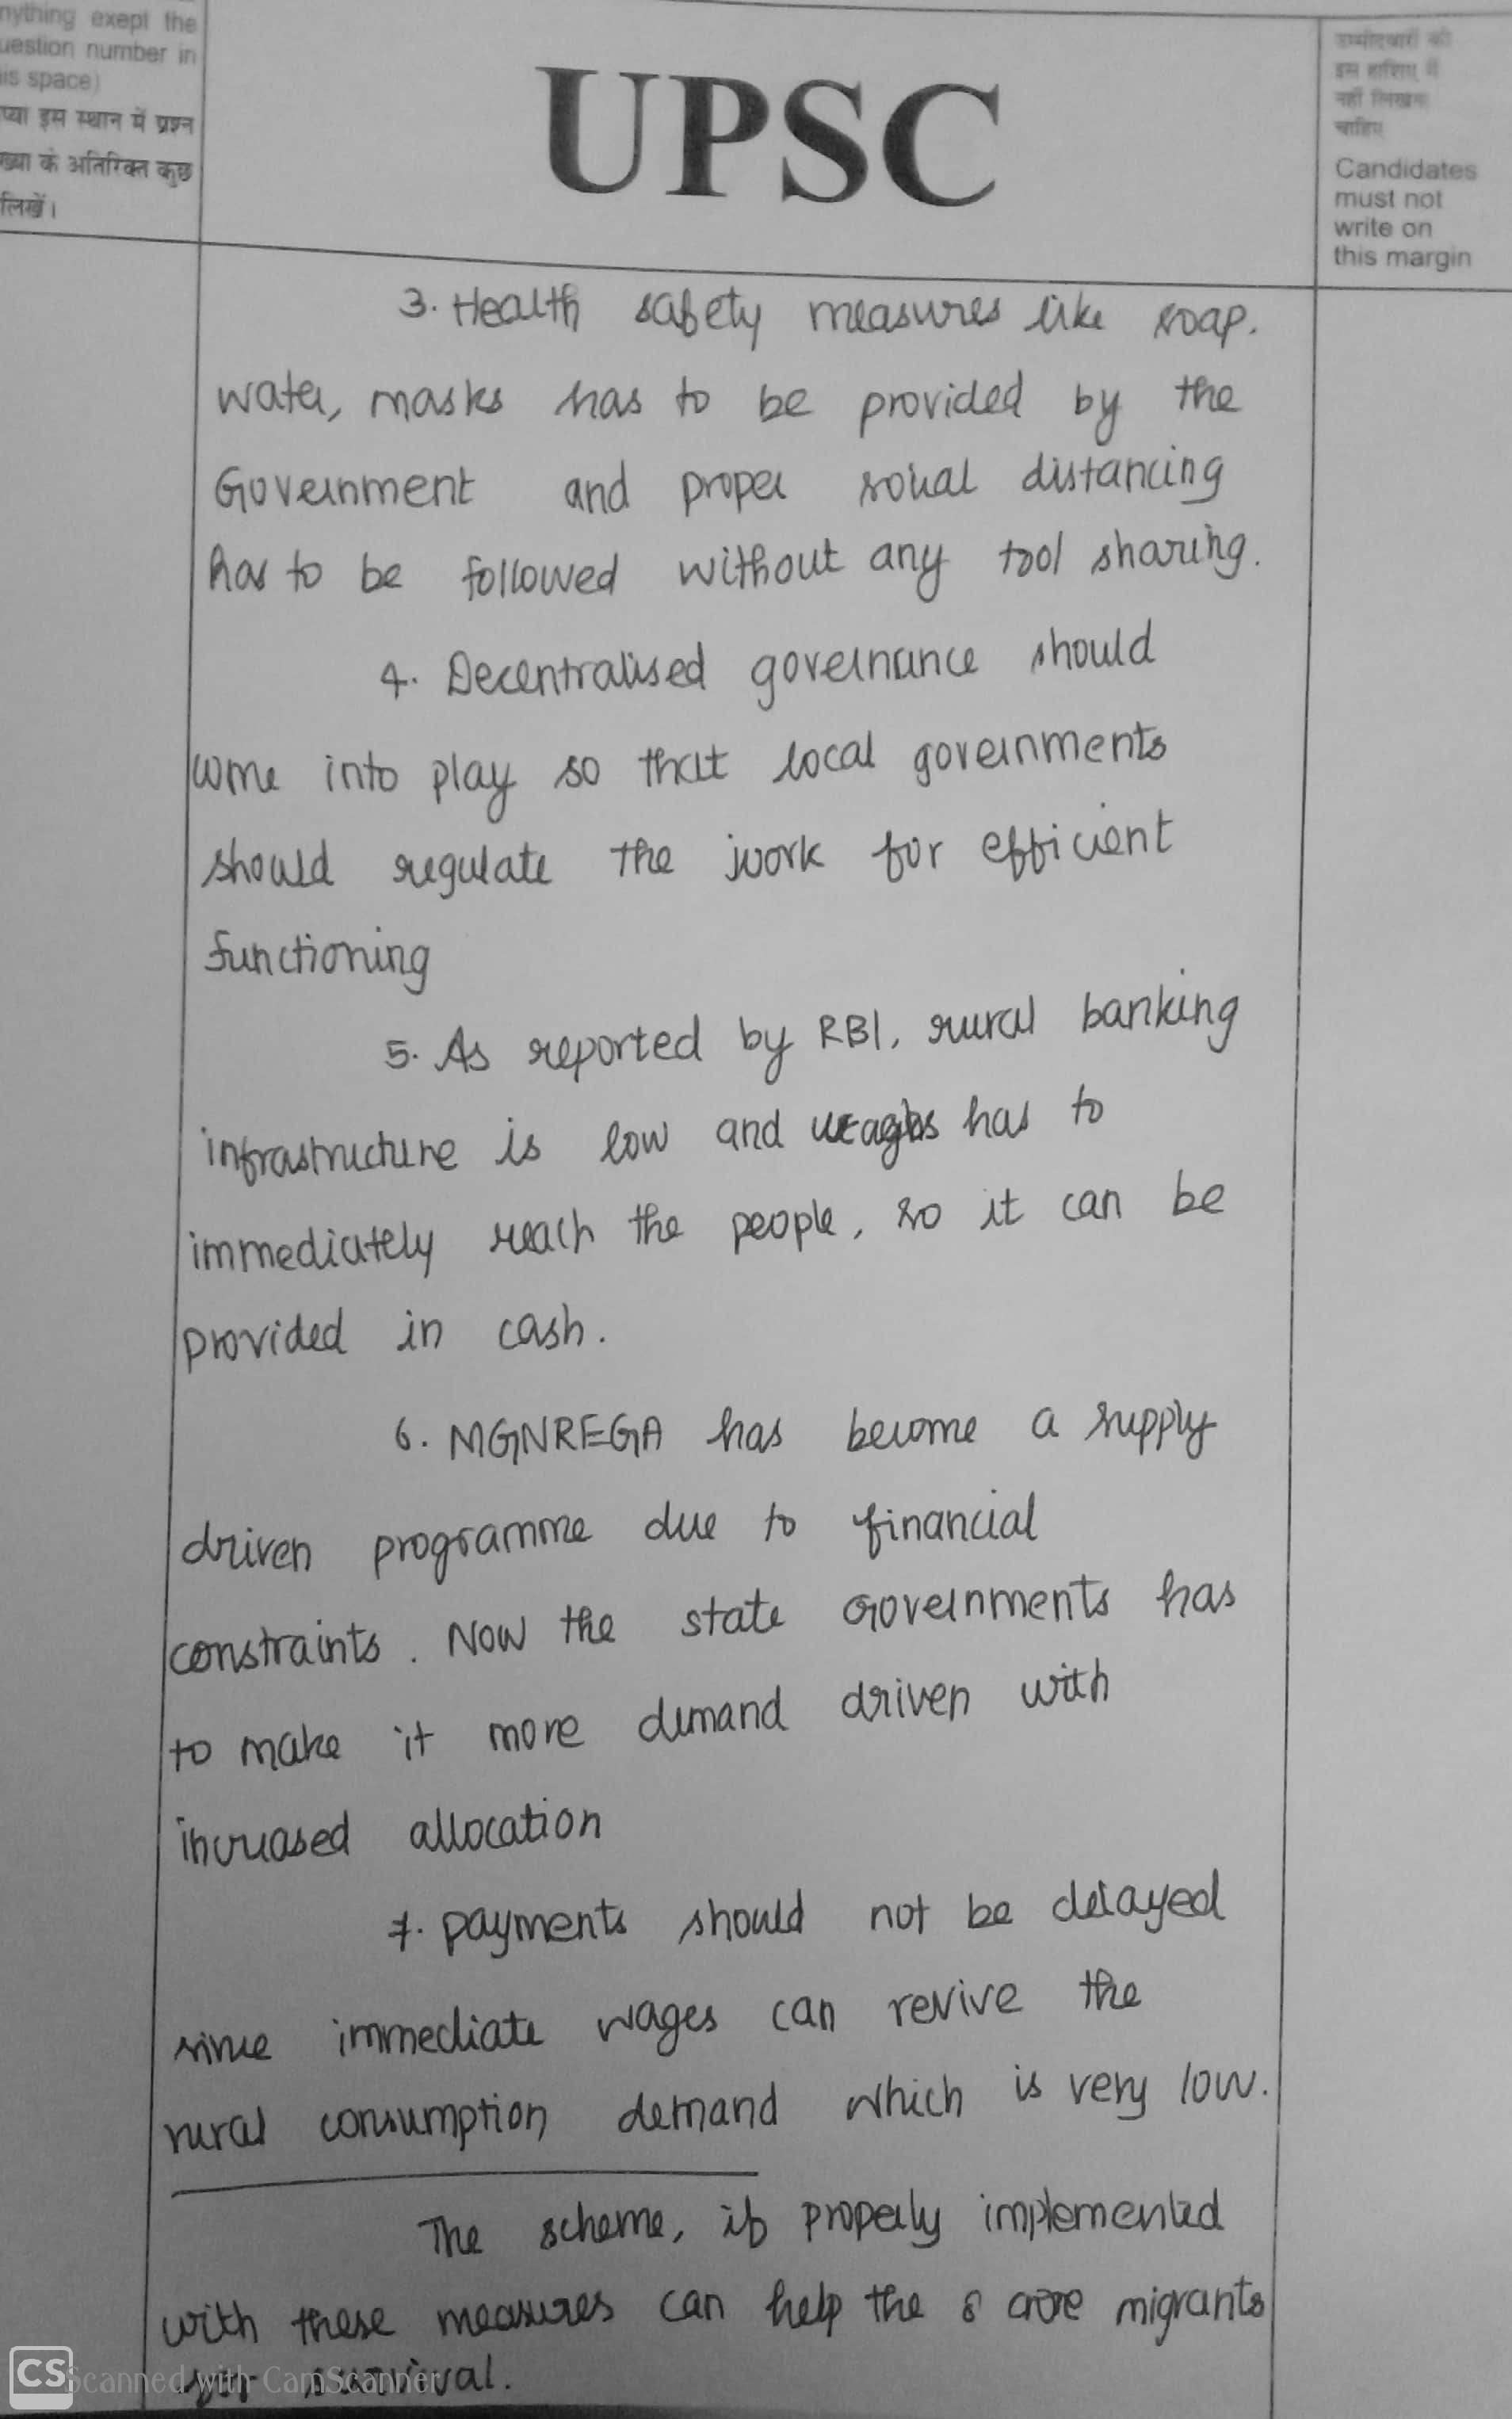 nything exept the
uestion number in
is space)
प्या इस स्थान में प्रश्न
ख्या के अतिरिक्त कुछ
लिखें।
UPSC
उम्मीदवारों को
इस हाशिए में
नहीं लिखना
चाहिए
Candidates
must not
write on
this margin
3. Health safety measures like soap.
water, masks has to be provided by the
Government and proper social distancing
has to be followed without any tool sharing.
4. Decentralised governance should
come into play so that local governments
should regulate the work for efficient
functioning
5. As reported by RBI, rural banking
infrastructure is low and has to
immediately reach the people, so it can be
provided in cash.
6. MGNREGA has become a supply
driven programme due to financial
constraints. Now the state Governments has
to make it more demand driven with
increased allocation
7. payments should not be delayed
since immediate wages can revive the
rural consumption demand which is very low.
The scheme, if properly implemented
with these measures can help the 8 crore migrants
for survival.
CS Scanned with CamScanner